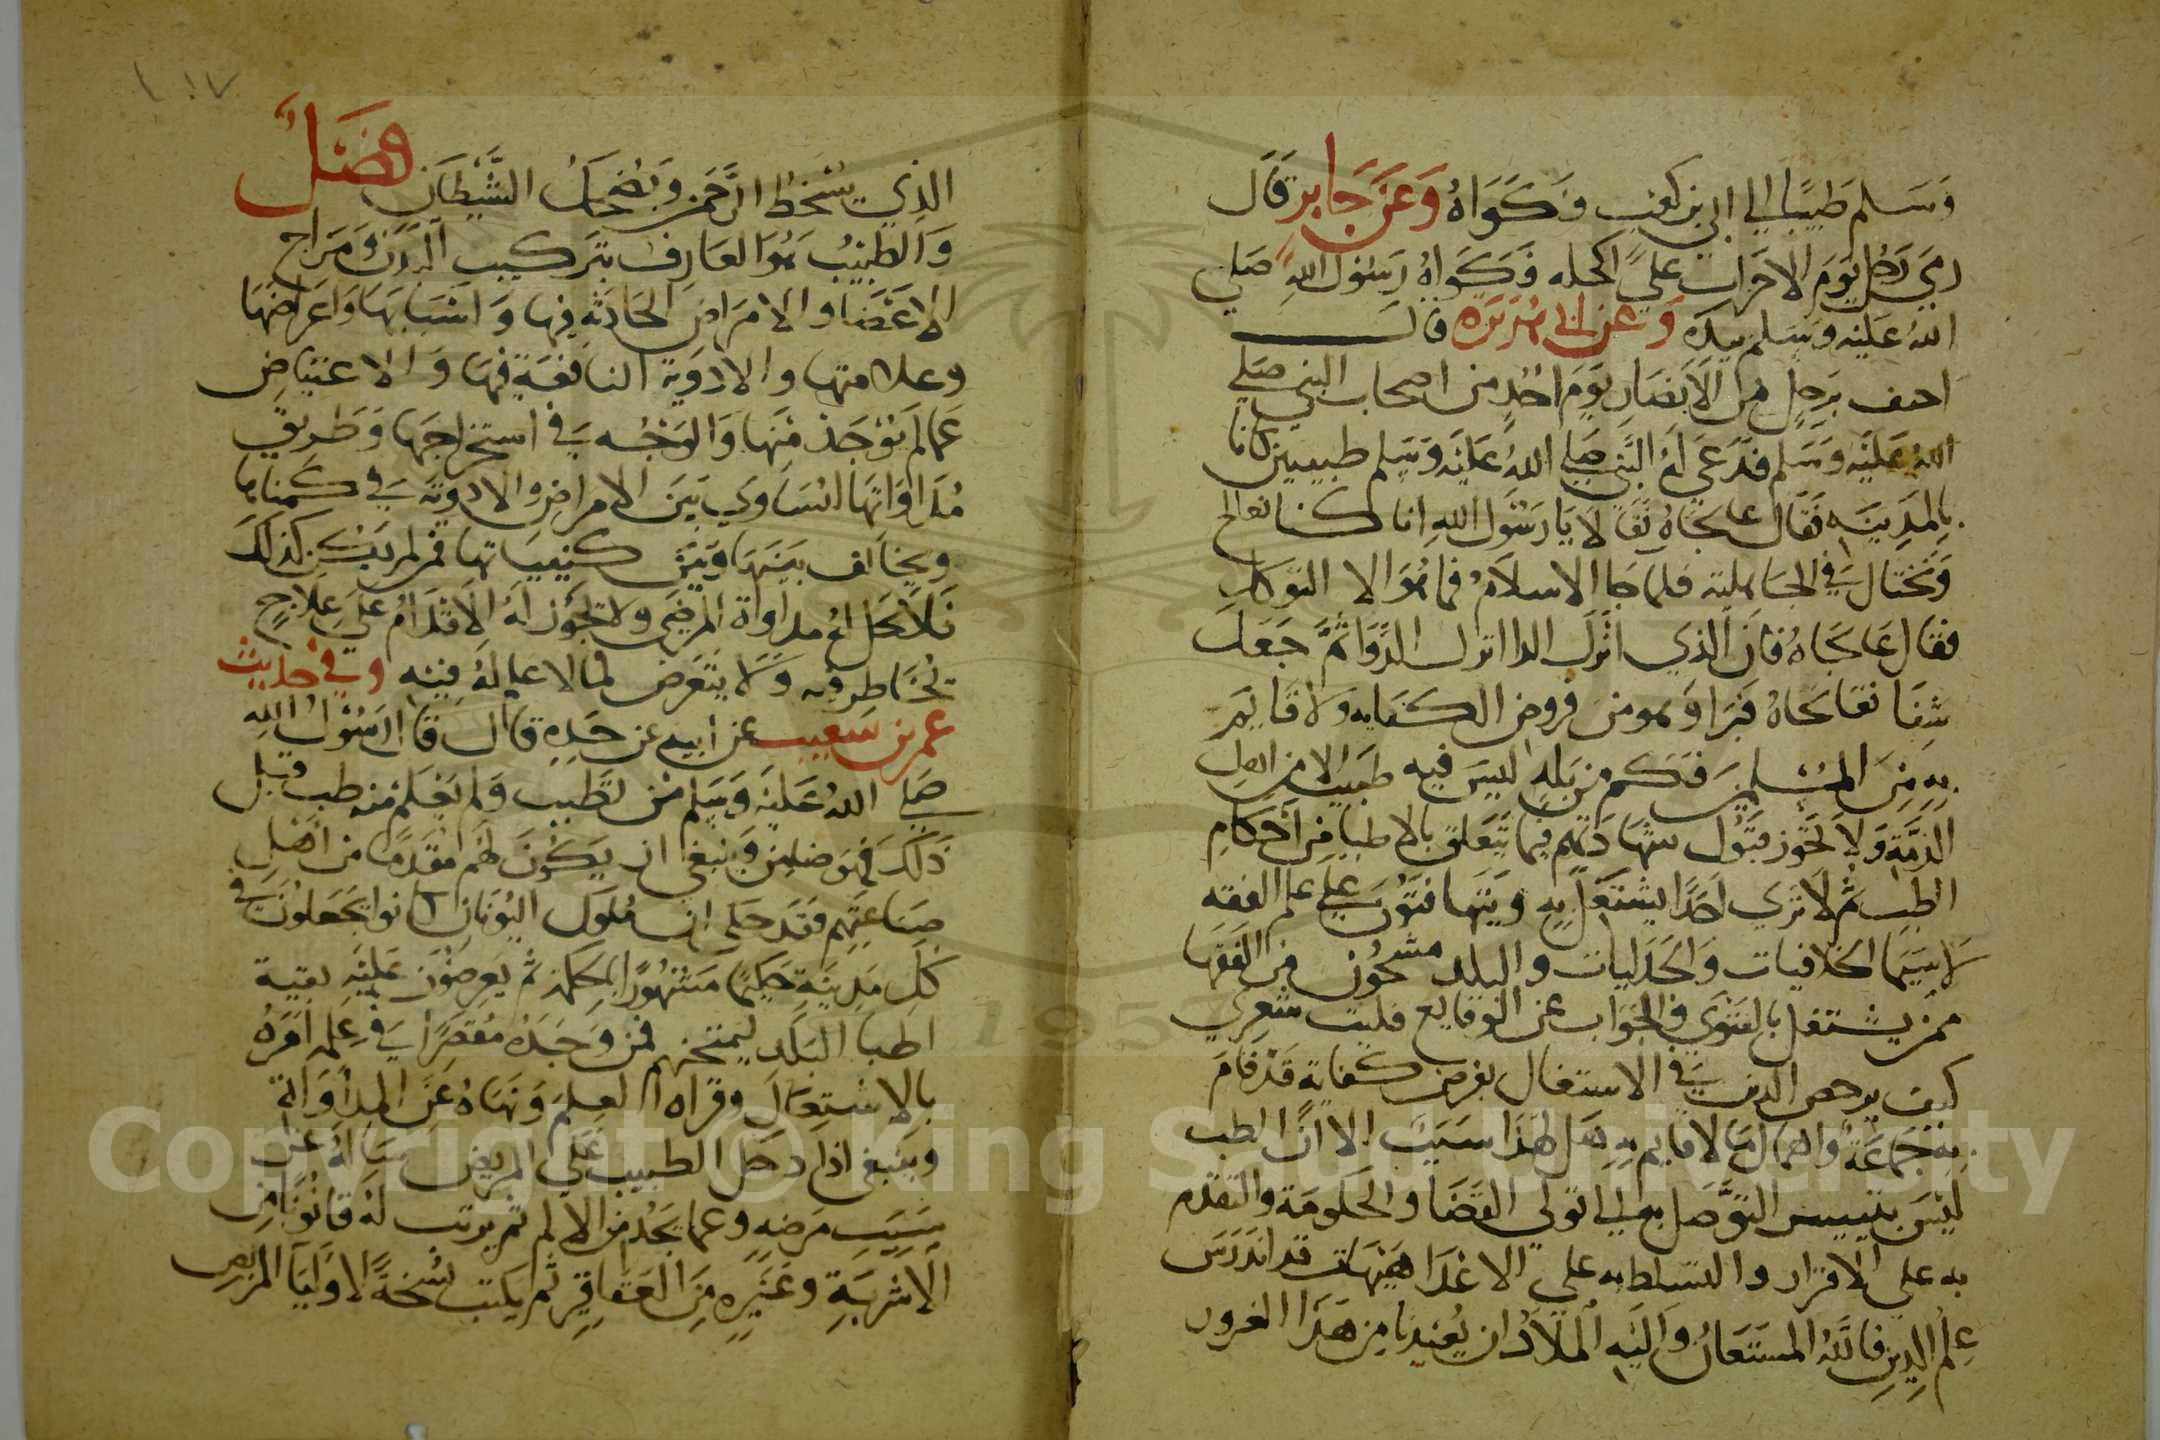 وسلم طبيبا الي ابي بن كعب فكواه وعن جابر قال
رمي رجل يوم الاحزاب علي اكحله فكواه رسول الله صلي
الله عليه وسلم بيده وعن ابي هريرة قال
برجل من الانصار يوم احد من اصحاب النبي صلي
الله عليه وسلم فدعي له النبي صلي الله عليه وسلم طبيبين كانا
بالمدينه فقال عالجاه فقالا يا رسول الله انا كنا نعالج
ونحتال في الجاهلية فلما جا الاسلام فما هو الا التوكل
فقال عالجاه فان الذي انزل الدا انزل الدوا ثم جعل
شفا فعالجاه فبرا وهو من فروض الكفايه ولا قايم
به من المسلمين فكم من بلد ليس فيه طبيب الا من اهل
الذمة ولا يجوز قبول شهادتهم فيما يتعلق بالاطبا من احكام
الطب ثم لا نري احدا يشتغل به ويتهافتون علي علم الفقه
لاسيما الخلافيات والجدليات والبلد مشحون من الفقها
ممن يشتغل بالفتوي والجواب عن الوقايع فليت شعري
كيف يرخص الدين في الاشتغال بفرض كفاية قد قام
به جماعة واهمال ما لا قايم به هل لهذا سبب الا ان الطب
ليس يتيسر التوصل به الي تولي القضا والحكومة والتقدم
به علي الاقران والتسلط به علي الاعدا هيهات قد اندرس
علم الدين فالله المستعان واليه الملاذ ان يعيذنا من هذا الغرور
الذي يسخط الرحمن ويضحك الشيطان فصل
والطبيب هو العارف بتركيب البدن ومزاج
الاعضا والامراض الحادثة فيها واسبابها واعراضها
وعلامتها والادوية النافعة فيها والاعتياض
عما لم يوجد منها والوجه في استخراجها وطريق
مداواتها ليساوي بين الامراض والادوية في كمياتها
ويخالف بينها وبين كيفياتها فمن لم يكن كذلك
فلا يحل له مداواة المرضي ولا يجوز له الاقدام علي علاج
يخاطر فيه ولا يتعرض لما لا علم له فيه وفي حديث
عمر بن شعيب عن ابيه عن جده قال قال رسول الله
صلي الله عليه وسلم من تطبب ولم يعلم منه طب قبل
ذلك فهو ضامن وينبغي ان يكون لهم مقدما من اهل
صناعتهم فقد حكي ان ملوك اليونان كانوا يجعلون في
كل مدينة حكيما مشهورا بالحكمة ثم يعرضون عليه بقية
اطبا البلد ليمتحنهم فمن وجده مقصرا في علمه امره
بالاشتغال وقراه العلم ونهاه عن المداواة
وينبغي اذا دخل الطبيب علي المريض ساله عن
سبب مرضه وعما يجد من الالم ثم يرتب له قانونا من
الاشربة وغيره من العقاقير ثم يكتب نسخة لاوليا المريض